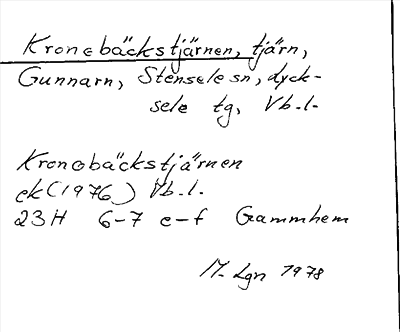 Kronebäckstjärnen, tjärn,
Gunnarn, Stensele sn, Lyck-
sele tg, Vb.l.
Kronobäckstjärnen
ek (1976) Vb.l.
23H 6-7 e-f Gammhem
M. Lgn 1978